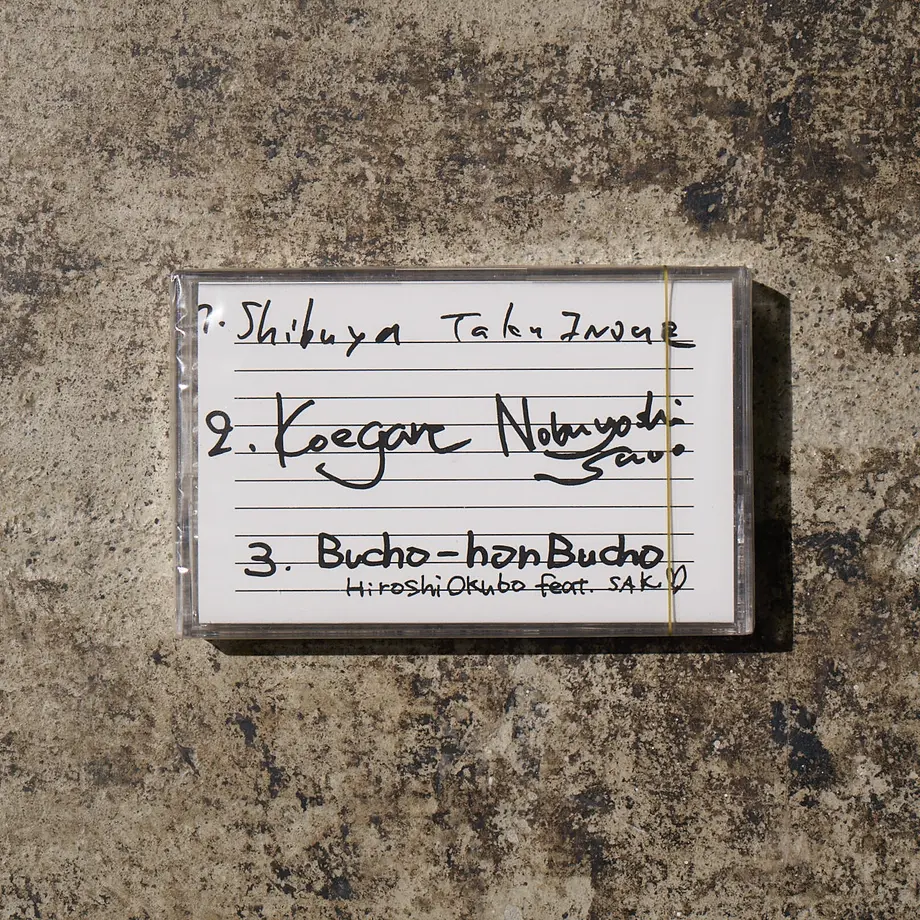 1. Shibuya Taku Inoue
2. Koegare Nobuyoshi
Sano
3. Bucho-honBucho
HiroshiOkubo feat. SAK♡